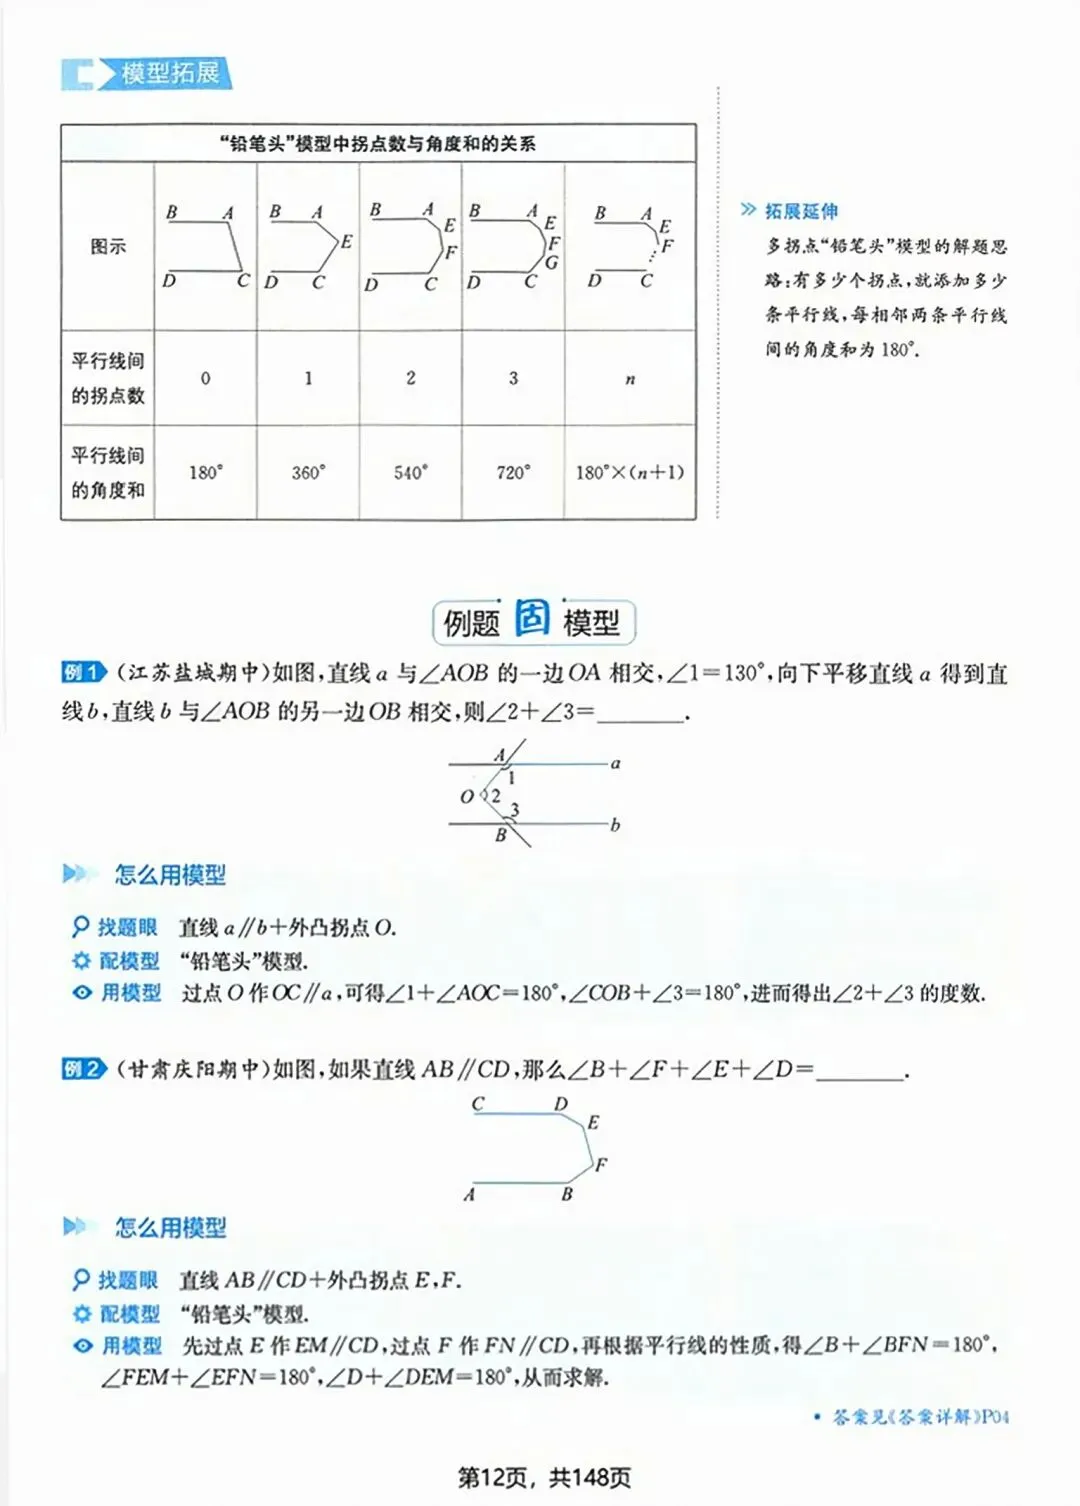 模型拓展
“铅笔头”模型中拐点数与角度和的关系
图示
B A
D C
B A
E
D C
B A
E
F
D C
B A
E
F
G
D C
B A
E
F
D C
平行线间
的拐点数
0 1 2 3 n
平行线间
的角度和
180° 360° 540° 720° 180°×(n+1)
拓展延伸
多拐点“铅笔头”模型的解题思
路:有多少个拐点,就添加多少
条平行线,每相邻两条平行线
间的角度和为 180°.
例题 固 模型
例1 (江苏盐城期中)如图,直线 a 与∠AOB 的一边OA 相交,∠1=130°,向下平移直线 a 得到直
线b,直线 b 与∠AOB 的另一边OB 相交,则∠2+∠3=________.
A
a
1
O 2
3
B
b
怎么用模型
找题眼 直线 a∥b+外凸拐点 O.
配模型 “铅笔头”模型.
用模型 过点 O 作OC∥a,可得∠1+∠AOC=180°,∠COB+∠3=180°,进而得出∠2+∠3 的度数.
例2 (甘肃庆阳期中)如图,如果直线 AB∥CD,那么∠B+∠F+∠E+∠D=________.
C D
E
F
A B
怎么用模型
找题眼 直线 AB∥CD+外凸拐点 E,F.
配模型 “铅笔头”模型.
用模型 先过点 E 作 EM∥CD,过点 F 作 FN∥CD,再根据平行线的性质,得∠B+∠BFN=180°,
∠FEM+∠EFN=180°,∠D+∠DEM=180°,从而求解.
• 答案见《答案详解》P04
第12页，共148页